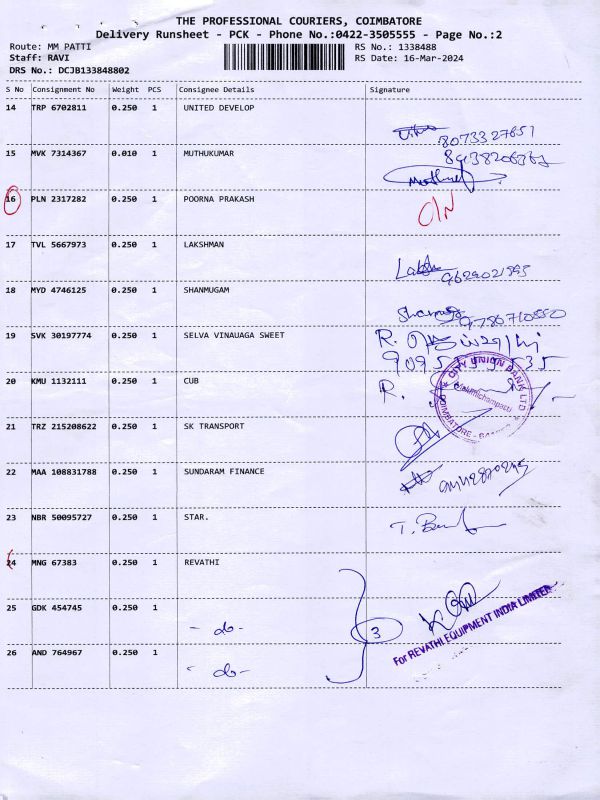 THE PROFESSIONAL COURIERS, COIMBATORE
Delivery Runsheet - PCK - Phone No.:0422-3505555 - Page No.:2
Route: MM PATTI RS No.: 1338488
Staff: RAVI RS Date: 16-Mar-2024
DRS No.: DCJB133848802
S No Consignment No Weight PCS Consignee Details Signature
14 TRP 6702811 0.250 1 UNITED DEVELOP
8073327651
15 MVK 7314367 0.010 1 MUTHUKUMAR
16 PLN 2317282 0.250 1 POORNA PRAKASH
17 TVL 5667973 0.250 1 LAKSHMAN
9629021995
18 MYD 4746125 0.250 1 SHANMUGAM
19 SVK 30197774 0.250 1 SELVA VINAUAGA SWEET
R.
20 KMU 1132111 0.250 1 CUB
R.
CITY UNION BANK LTD
COIMBATORE
21 TRZ 215208622 0.250 1 SK TRANSPORT
22 MAA 108831788 0.250 1 SUNDARAM FINANCE
23 NBR 50095727 0.250 1 STAR.
T.
24 MNG 67383 0.250 1 REVATHI
25 GDK 454745 0.250 1
- do -
3
26 AND 764967 0.250 1
- do -
For REVATHI EQUIPMENT INDIA LIMITED